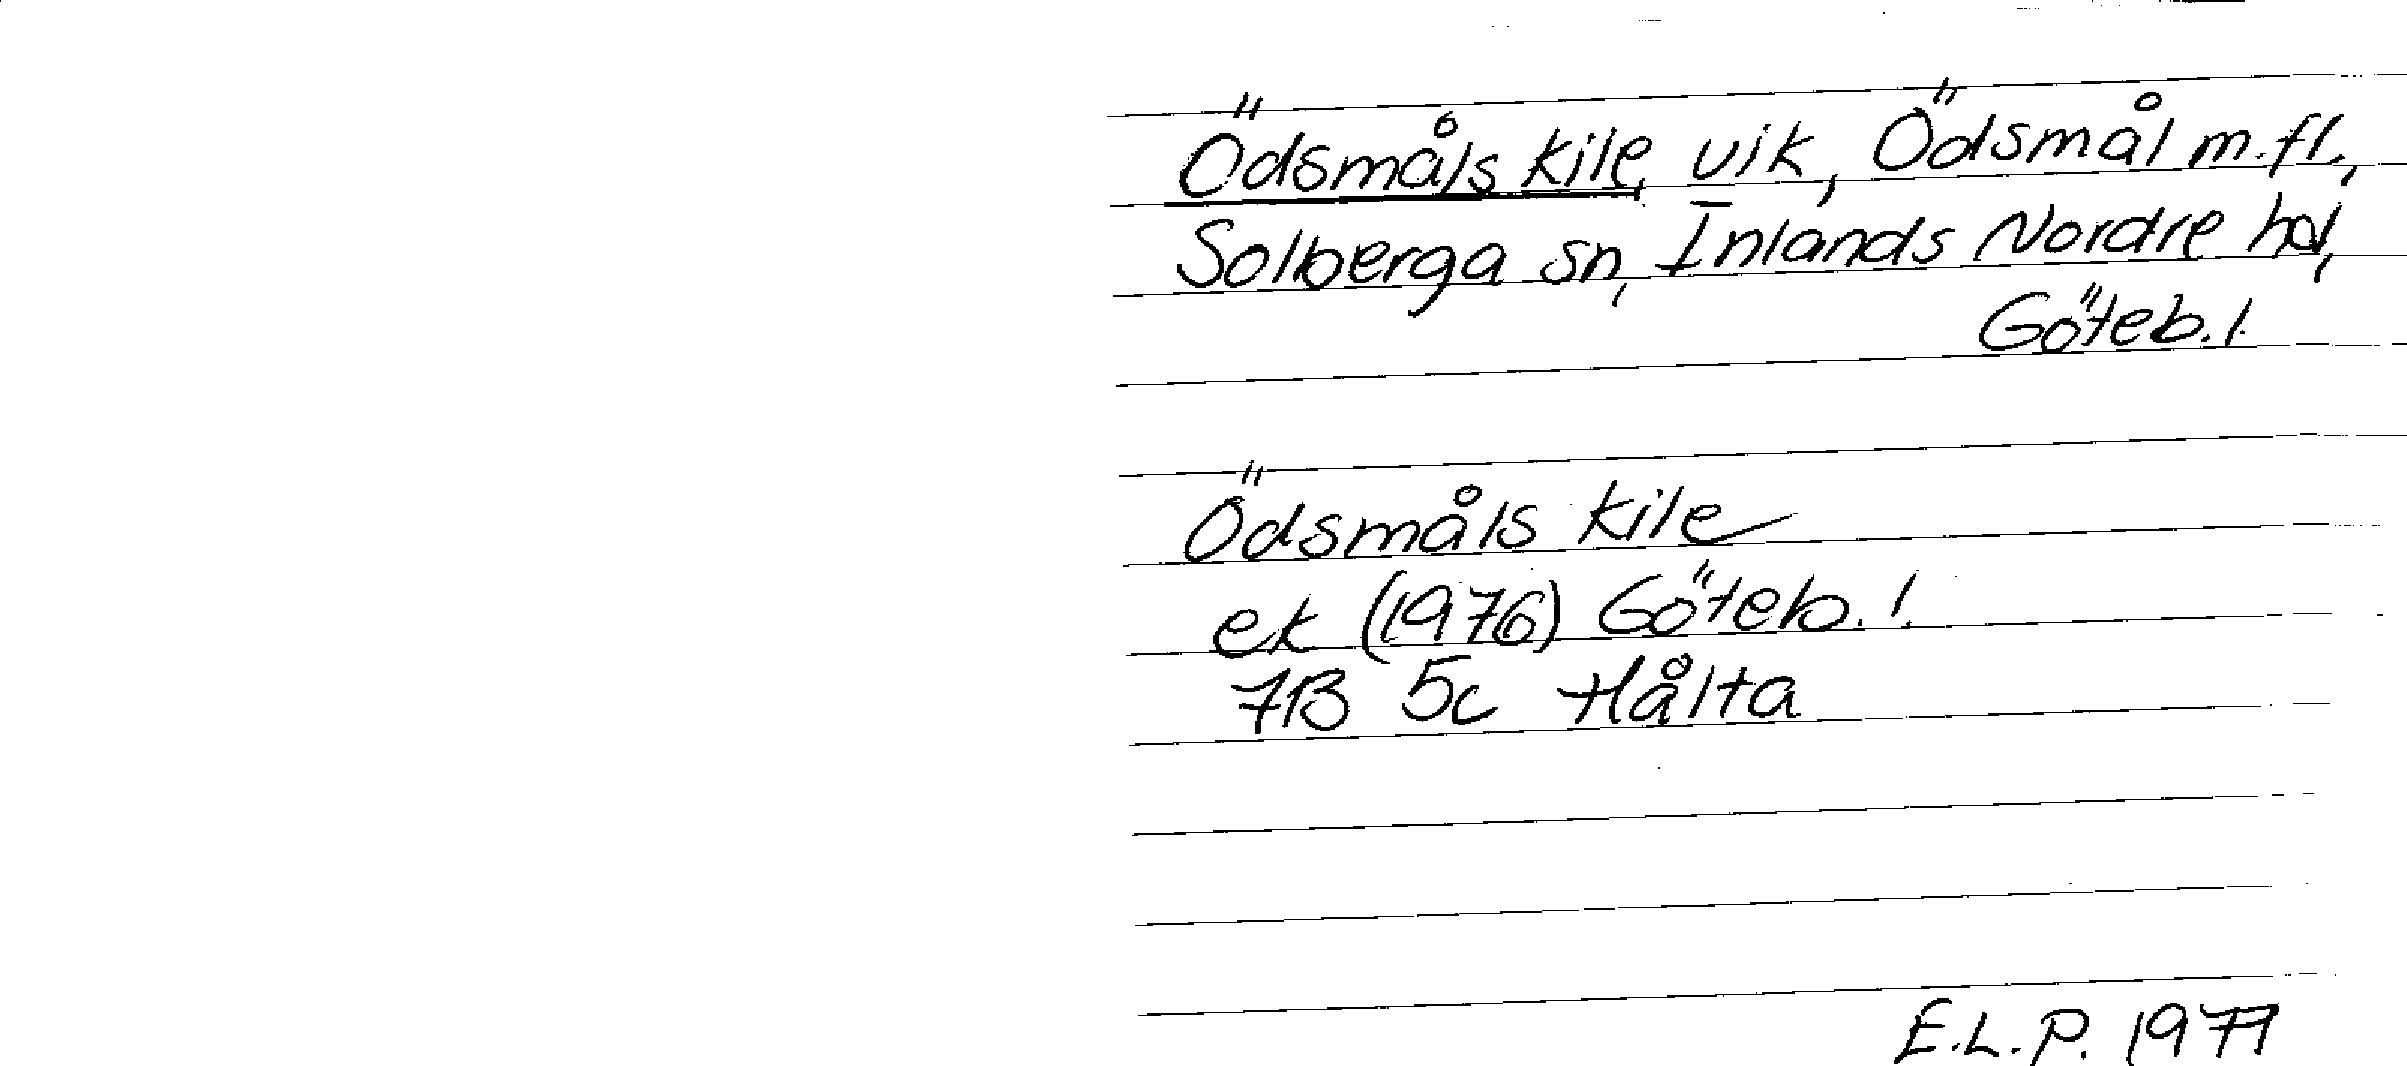 Ödsmåls kile, vik, Ödsmål m.fl.,
Solberga sn, Inlands Nordre hd,
Göteb. l.
Ödsmåls kile
ek (1976) Göteb. l.
7B 5c Hålta
E.L.P. 1977